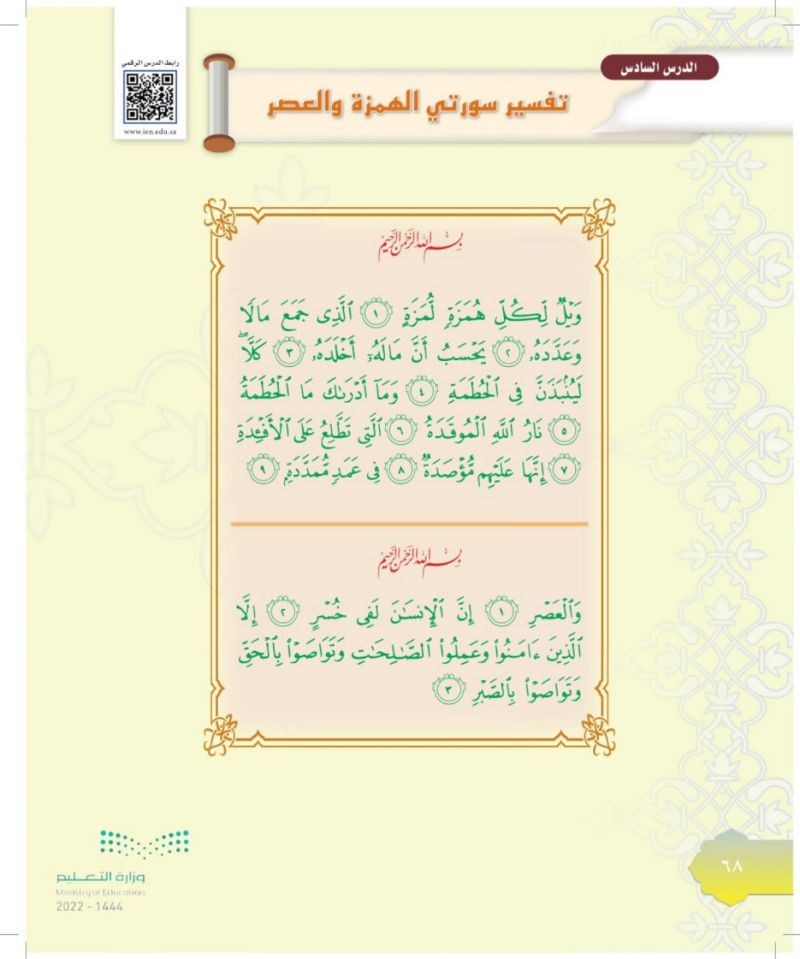 رابط الدرس الرقمي
www.ien.edu.sa
الدرس السادس
تفسير سورتي الهمزة والعصر
بِسْمِ اللَّهِ الرَّحْمَٰنِ الرَّحِيمِ
وَيْلٌ لِّكُلِّ هُمَزَةٍ لُّمَزَةٍ ١ ٱلَّذِى جَمَعَ مَالًا
وَعَدَّدَهُۥ ٢ يَحْسَبُ أَنَّ مَالَهُۥٓ أَخْلَدَهُۥ ٣ كَلَّاۖ
لَيُنۢبَذَنَّ فِى ٱلْحُطَمَةِ ٤ وَمَآ أَدْرَىٰكَ مَا ٱلْحُطَمَةُ
٥ نَارُ ٱللَّهِ ٱلْمُوقَدَةُ ٦ ٱلَّتِى تَطَّلِعُ عَلَى ٱلْأَفْـِٔدَةِ
٧ إِنَّهَا عَلَيْهِم مُّؤْصَدَةٌ ٨ فِى عَمَدٍ مُّمَدَّدَةٍۭ ٩
بِسْمِ اللَّهِ الرَّحْمَٰنِ الرَّحِيمِ
وَٱلْعَصْرِ ١ إِنَّ ٱلْإِنسَٰنَ لَفِى خُسْرٍ ٢ إِلَّا
ٱلَّذِينَ ءَامَنُوا۟ وَعَمِلُوا۟ ٱلصَّٰلِحَٰتِ وَتَوَاصَوْا۟ بِٱلْحَقِّ
وَتَوَاصَوْا۟ بِٱلصَّبْرِ ٣
وزارة التعليم
Ministry of Education
2022 - 1444
٦٨